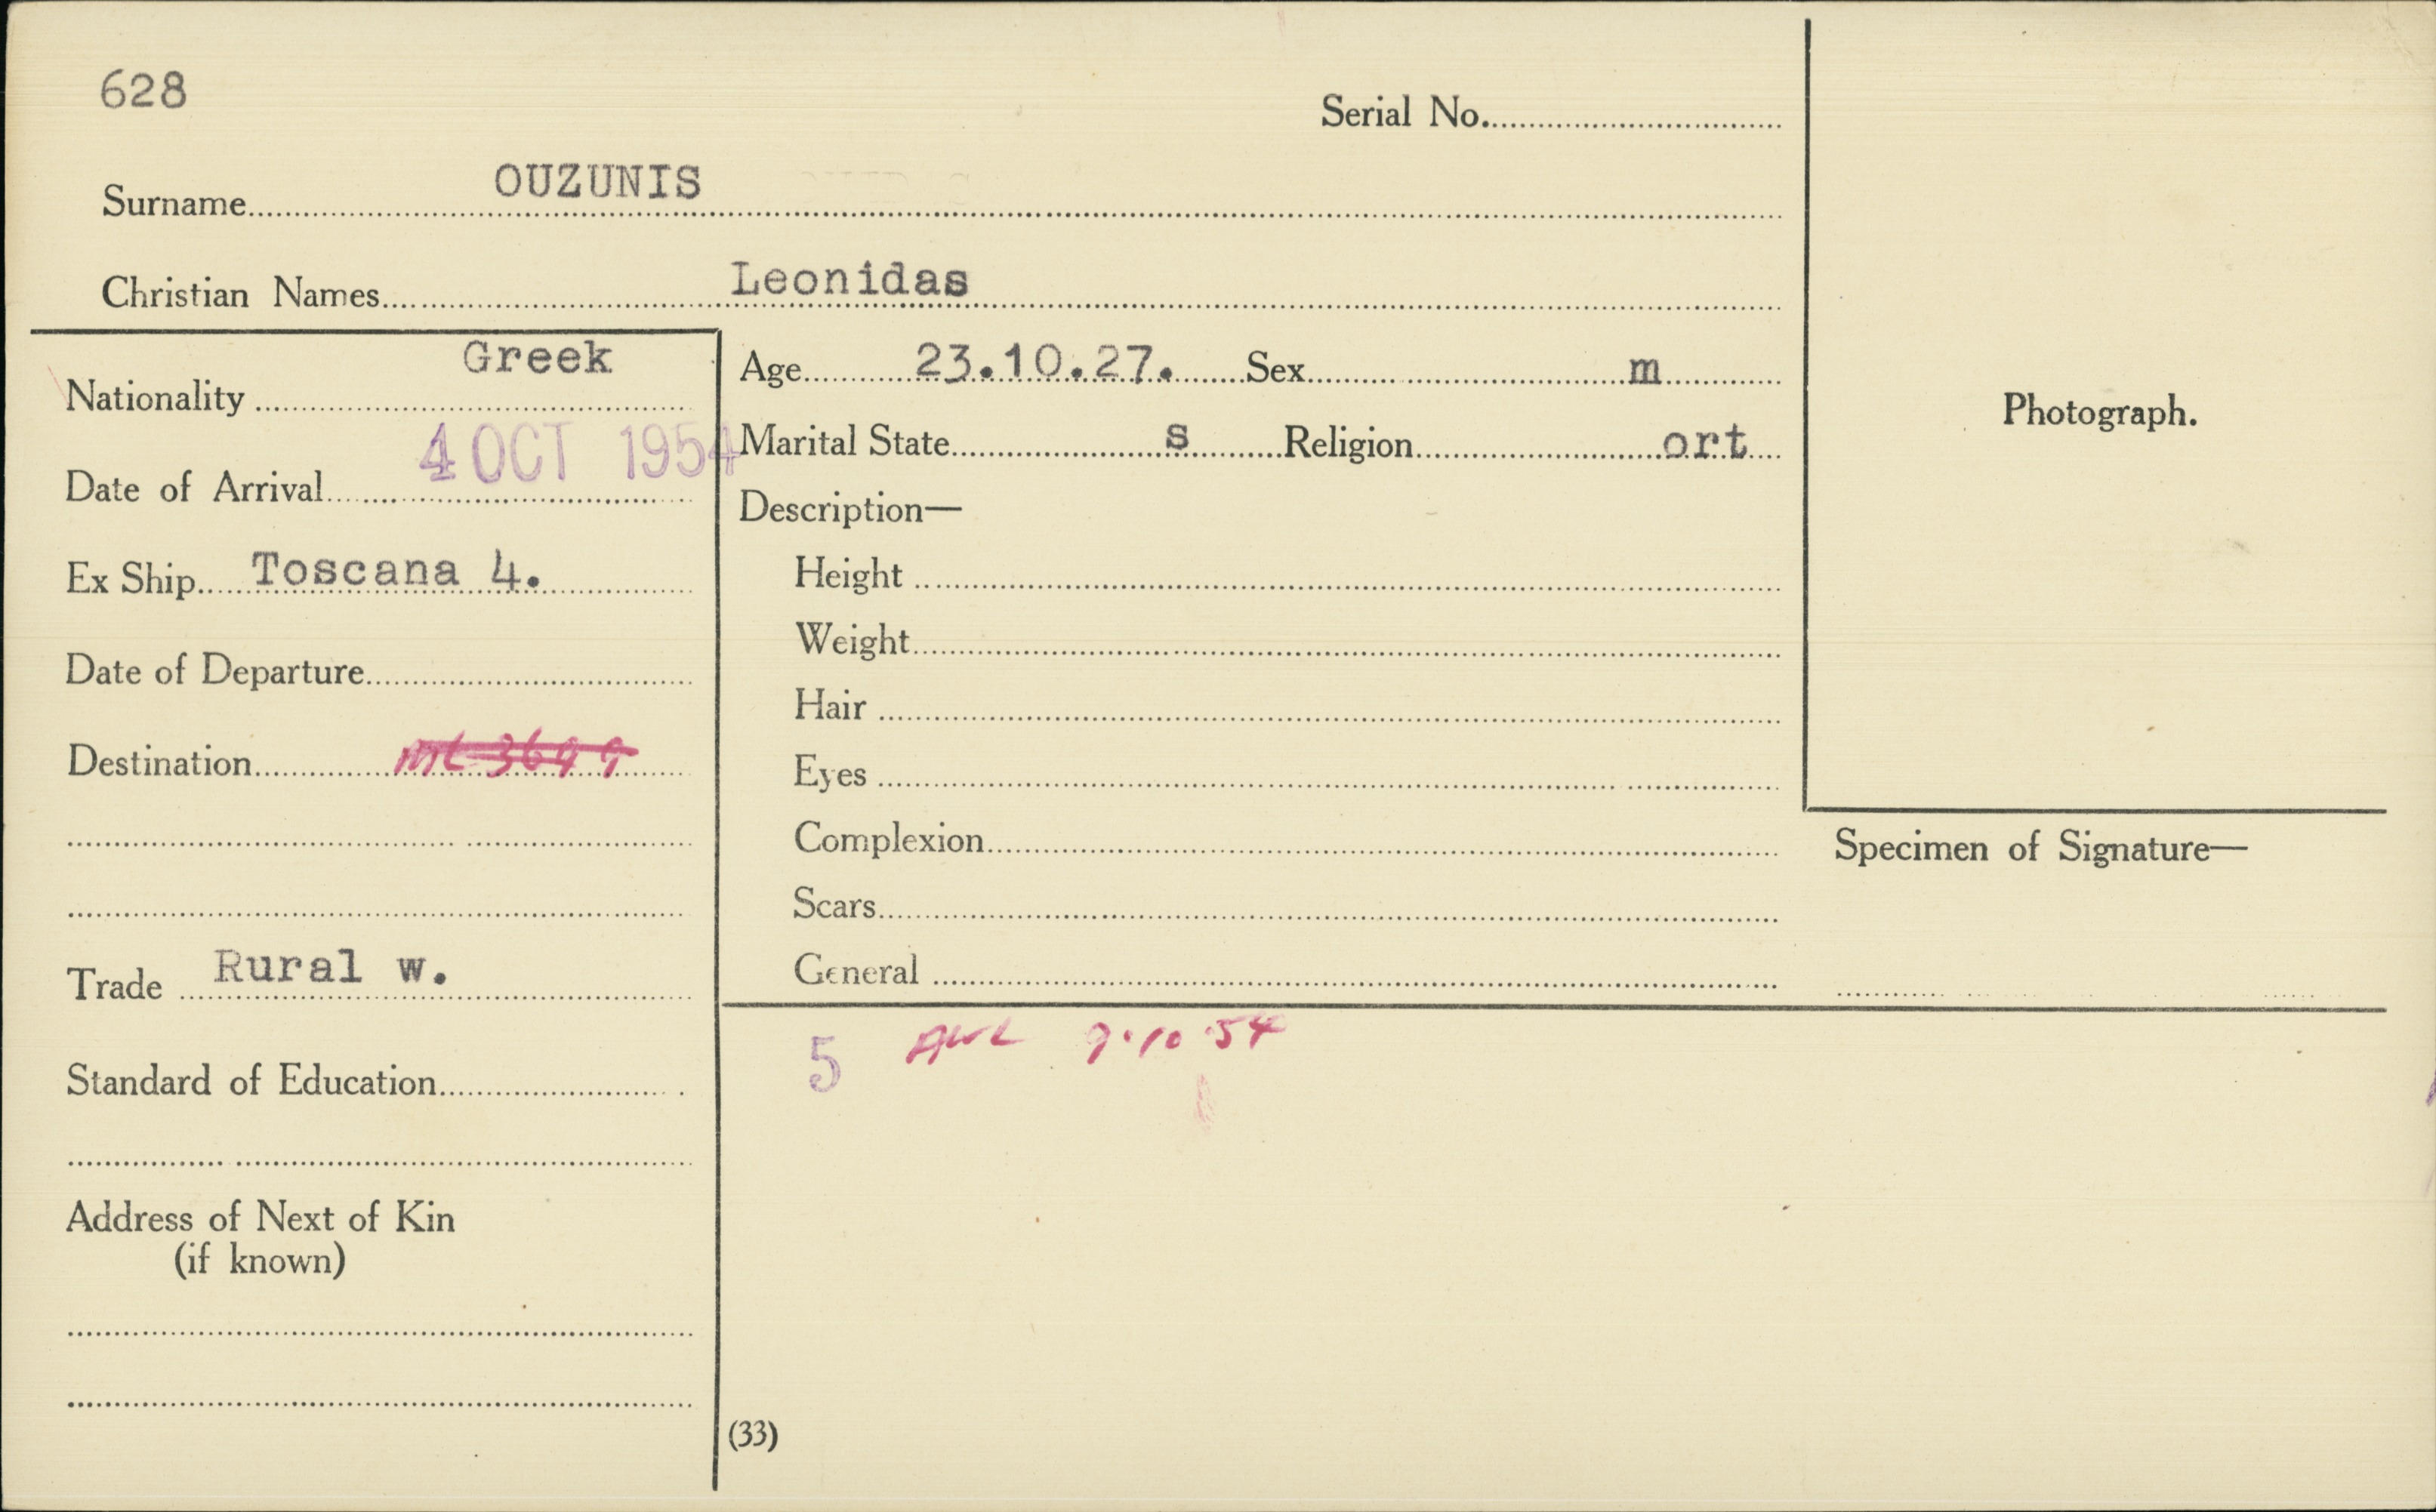 628
Serial No.
Surname OUZUNIS
Christian Names Leonidas
Nationality Greek
Date of Arrival 4 OCT 1954
Ex Ship Toscana 4.
Date of Departure
Destination
Trade Rural w.
Standard of Education
Address of Next of Kin
(if known)
Age 23.10.27. Sex m
Marital State s Religion ort
Description—
Height
Weight
Hair
Eyes
Complexion
Scars
General
5 AWL 9.10.54
(33)
Photograph.
Specimen of Signature—